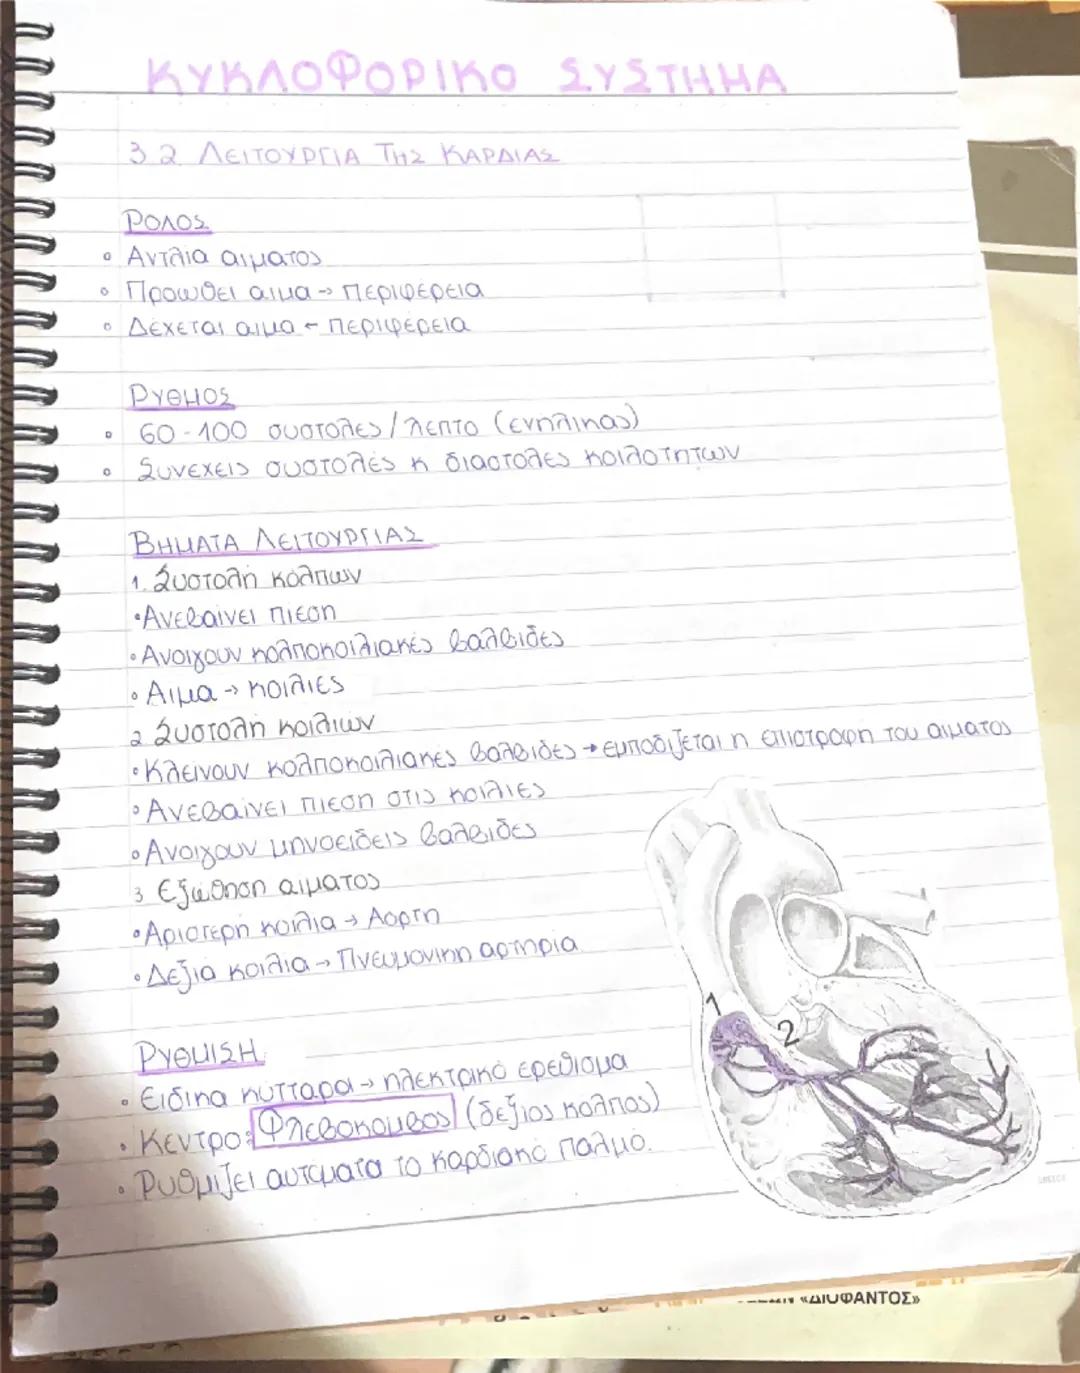 ΚΥΚΛΟΦΟΡΙΚΟ ΣΥΣΤΗΜΑ
3.2 ΛΕΙΤΟΥΡΓΙΑ ΤΗΣ ΚΑΡΔΙΑΣ
ΡΟΛΟΣ
• Αντλία αιματος
• Προωθει αιμα → περιφέρεια
• Δέχεται αιμα ← περιφέρεια
ΡΥΘΜΟΣ
• 60-100 συστολες/λεπτο (ενηλικας)
• Συνεχεις συστολές κ διαστολες κοιλοτητων
ΒΗΜΑΤΑ ΛΕΙΤΟΥΡΓΙΑΣ
1. Συστολή κόλπων
• Ανεβαίνει πιεση
• Ανοιγουν κολποκοιλιακές βαλβιδες
• Αιμα → κοιλιες
2 Συστολή κοιλιων
• Κλεινουν κολποκοιλιακες βαλβιδες → εμποδιζεται η επιστροφη του αιματος
• Ανεβαινει πιεση στις κοιλιες
• Ανοιγουν μηνοειδεις βαλβιδες
3 Εξωθηση αιματος
• Αριστερή κοιλια → Αορτη
• Δεξιά κοιλια → Πνευμονικη αρτηρία
ΡΥΘΜΙΣΗ
• Ειδικα κυτταρα → ηλεκτρικό ερεθισμα
• Κεντρο: Φλεβοκομβος (δεξιος κολπος)
• Ρυθμιζει αυτοματα το καρδιακό παλμό.
1
2
«ΔΙΟΦΑΝΤΟΣ»